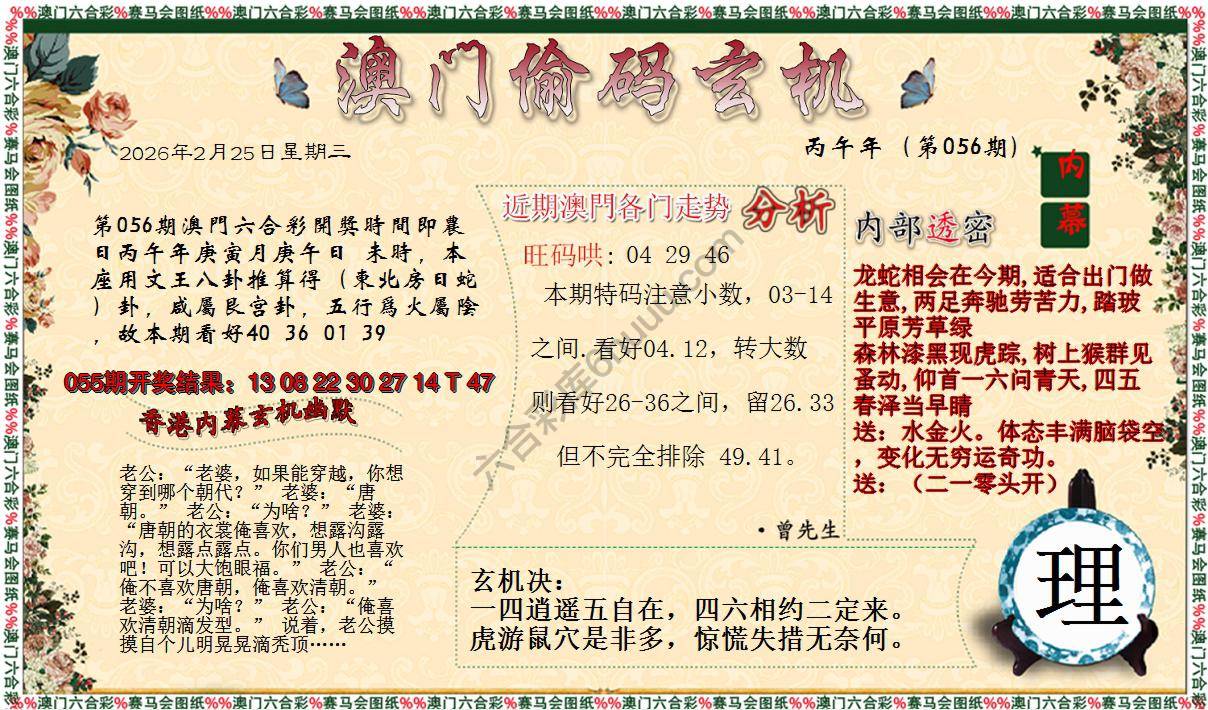 %%澳门六合彩%赛马会图纸%%澳门六合彩%赛马会图纸%%澳门六合彩%赛马会图纸%%澳门六合彩%赛马会图纸%%澳门六合彩%赛马会图纸%%澳门六合彩%赛马会图纸%%
澳门偷码玄机
2026年2月25日星期三
丙午年（第056期）
内
幕
第056期澳門六合彩開獎時間即農
日丙午年庚寅月庚午日 未時，本
座用文王八卦推算得（東北房日蛇
）卦，咸屬艮宫卦，五行爲火屬陰
，故本期看好40 36 01 39
055期开奖结果：13 08 22 30 27 14 T 47
香港内幕玄机幽默
老公：“老婆，如果能穿越，你想
穿到哪个朝代？” 老婆：“唐
朝。” 老公：“为啥？” 老婆：
“唐朝的衣裳俺喜欢，想露沟露
沟，想露点露点。你们男人也喜欢
吧！可以大饱眼福。” 老公：“
俺不喜欢唐朝，俺喜欢清朝。”
老婆：“为啥？” 老公：“俺喜
欢清朝滴发型。” 说着，老公摸
摸自个儿明晃晃滴秃顶……
近期澳門各门走势 分析
旺码哄: 04 29 46
本期特码注意小数，03-14
之间.看好04.12，转大数
则看好26-36之间，留26.33
但不完全排除 49.41。
·曾先生
玄机决：
一四逍遥五自在，四六相约二定来。
虎游鼠穴是非多，惊慌失措无奈何。
内部透密
龙蛇相会在今期,适合出门做
生意,两足奔驰劳苦力,踏玻
平原芳草绿
森林漆黑现虎踪,树上猴群见
蚤动,仰首一六问青天,四五
春泽当早睛
送：水金火。体态丰满脑袋空
，变化无穷运奇功。
送：（二一零头开）
理
六合彩库6huuu.com
%%澳门六合彩%赛马会图纸%%澳门六合彩%赛马会图纸%%澳门六合彩%赛马会图纸%%澳门六合彩%赛马会图纸%%澳门六合彩%赛马会图纸%%澳门六合彩%赛马会图纸%%